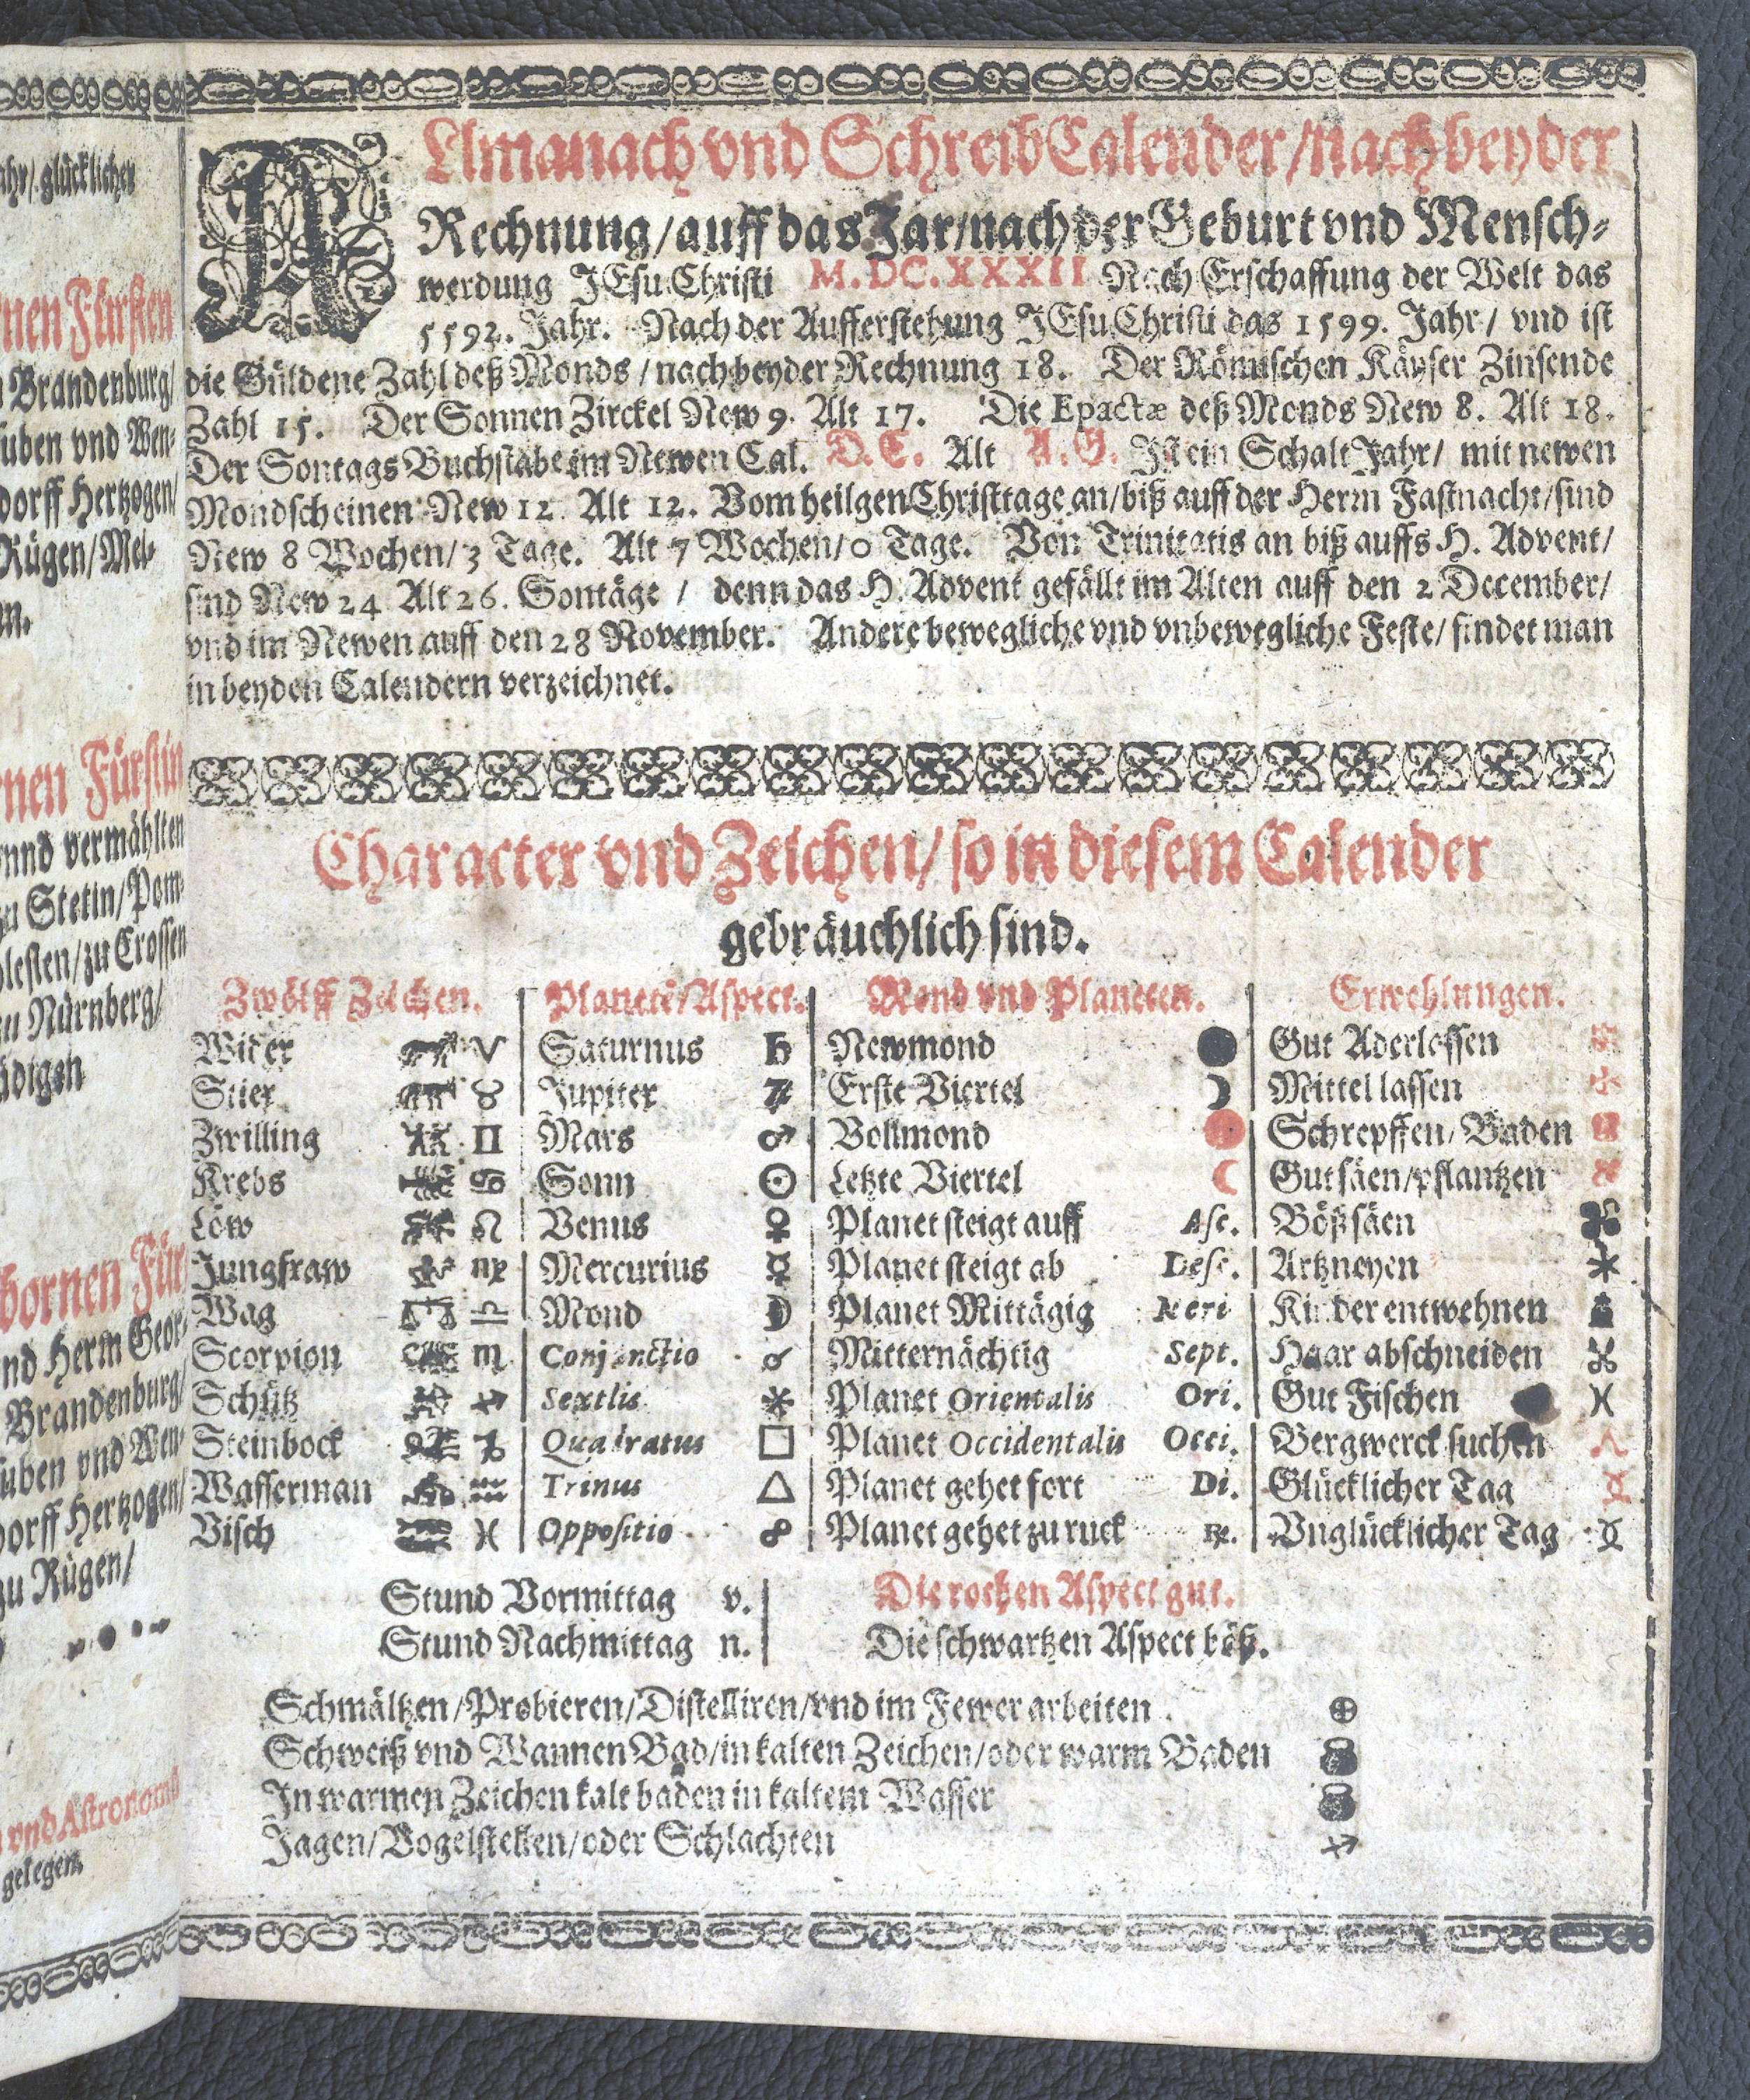 Almanach vnd SchreibCalender / nach beyder
Rechnung / auff das Jar / nach der Geburt vnd Mensch⸗
werdung JEsu Christi M.DC.XXXII Nach Erschaffung der Welt das
5592. Jahr. Nach der Aufferstehung JEsu Christi das 1599. Jahr / vnd ist
die Güldene Zahl deß Monds / nach beyder Rechnung 18. Der Römischen Käyser Zinsende
Zahl 15. Der Sonnen Zirckel New 9. Alt 17. Die Epactæ deß Monds New 8. Alt 18.
Der Sontags Buchstabe im Newen Cal. D.C. Alt A.G. Ist ein Schalt Jahr / mit newen
Mondscheinen New 12 Alt 12. Vom heilgen Christtage an / biß auff der Herrn Fastnacht / sind
New 8 Wochen / 3 Tage. Alt 7 Wochen / 0 Tage. Von Trinitatis an biß auffs H. Advent /
sind New 24 Alt 26. Sontäge / denn das H. Advent gefällt im Alten auff den 2 December /
vnd im Newen auff den 28 November. Andere bewegliche vnd vnbewegliche Feste / findet man
in beyden Calendern verzeichnet.
Character vnd Zeichen / so in diesem Calender
gebräuchlich sind.
Zwölff Zeichen. Planetē / Aspect. Mond vnd Planeten. Erwehlungen.
Wider ♈ Saturnus ♄ Newmond ● Gut Aderlassen
Stier ♉ Jupiter ♃ Erste Viertel ☽ Mittel lassen
Zwilling ♊ Mars ♂ Vollmond ● Schrepffen / Baden
Krebs ♋ Sonn ☉ Letzte Viertel ☾ Gut säen / pflantzen
Löw ♌ Venus ♀ Planet steigt auff Asc. Böß säen
Jungfraw ♍ Mercurius ☿ Planet steigt ab Desc. Artzneyen
Wag ♎ Mond ☽ Planet Mittägig Meri Kinder entwehnen
Scorpion ♏ Conjunctio ☌ Mitternächtig Sept. Haar abschneiden
Schütz ♐ Sextlis ⚹ Planet Orientalis Ori. Gut Fischen
Steinbock ♑ Quadratus □ Planet Occidentalis Occi. Bergwerck suchen
Wasserman ♒ Trinus △ Planet gehet fort Di. Glücklicher Tag
Visch ♓ Oppositio ☍ Planet gehet zu ruck ℞. Vnglücklicher Tag
Stund Vormittag v. Die rothen Aspect gut.
Stund Nachmittag n. Die schwartzen Aspect böß.
Schmältzen / Probieren / Distelliren / vnd im Fewer arbeiten ⊕
Schweiß vnd Wannen Bad / in kalten Zeichen / oder warm Baden
In warmen Zeichen kalt baden in kaltem Wasser
Jagen / Vogelstellen / oder Schlachten ♐
glücklicher
Fürsten
Brandenburg /
vnd Wen⸗
dorff Hertzogen /
Rügen / Mel⸗
Fürstin
vnnd vermählten
Stetin / Pom⸗
zu Crossen
Nürnberg /
Herrn Geor⸗
Brandenburg /
vnd Wen⸗
Hertzogen /
zu Rügen /
vnd Astronomi
gelegen.